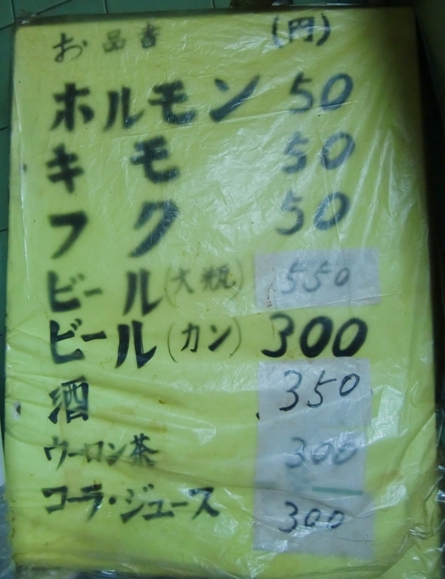 お品書 (円)
ホルモン 50
キモ 50
フク 50
ビール(大瓶) 550
ビール(カン) 300
酒 350
ウーロン茶 300
コーラ・ジュース 300